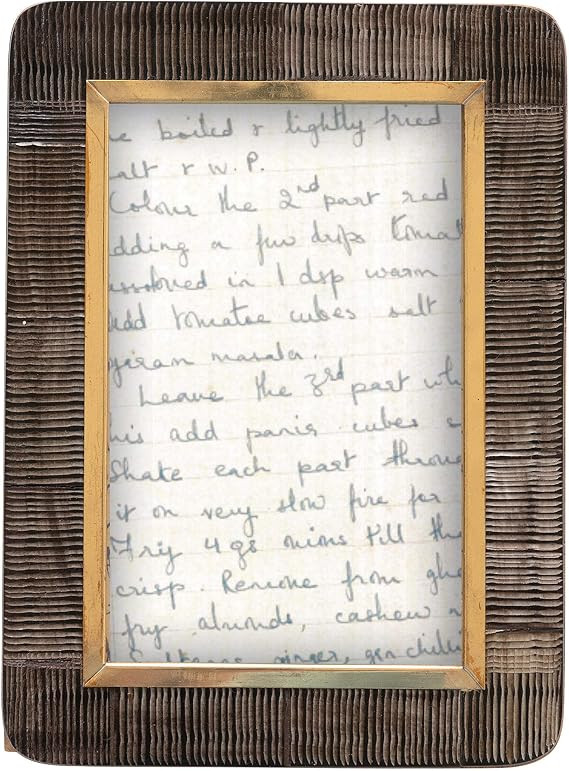 e boiled & lightly fried
alt & W.P.
Colour the 2nd part red
dding a few drops tomat
ssolved in 1 dsp warm
add tomatoe cubes salt
garam masala.
Leave the 3rd part wh
his add panir cubes s
Shake each part throug
it on very slow fire for
Fry 4 gs onions till the
crisp. Remove from ghe
fry almonds, cashew n
ginger, grn chilli